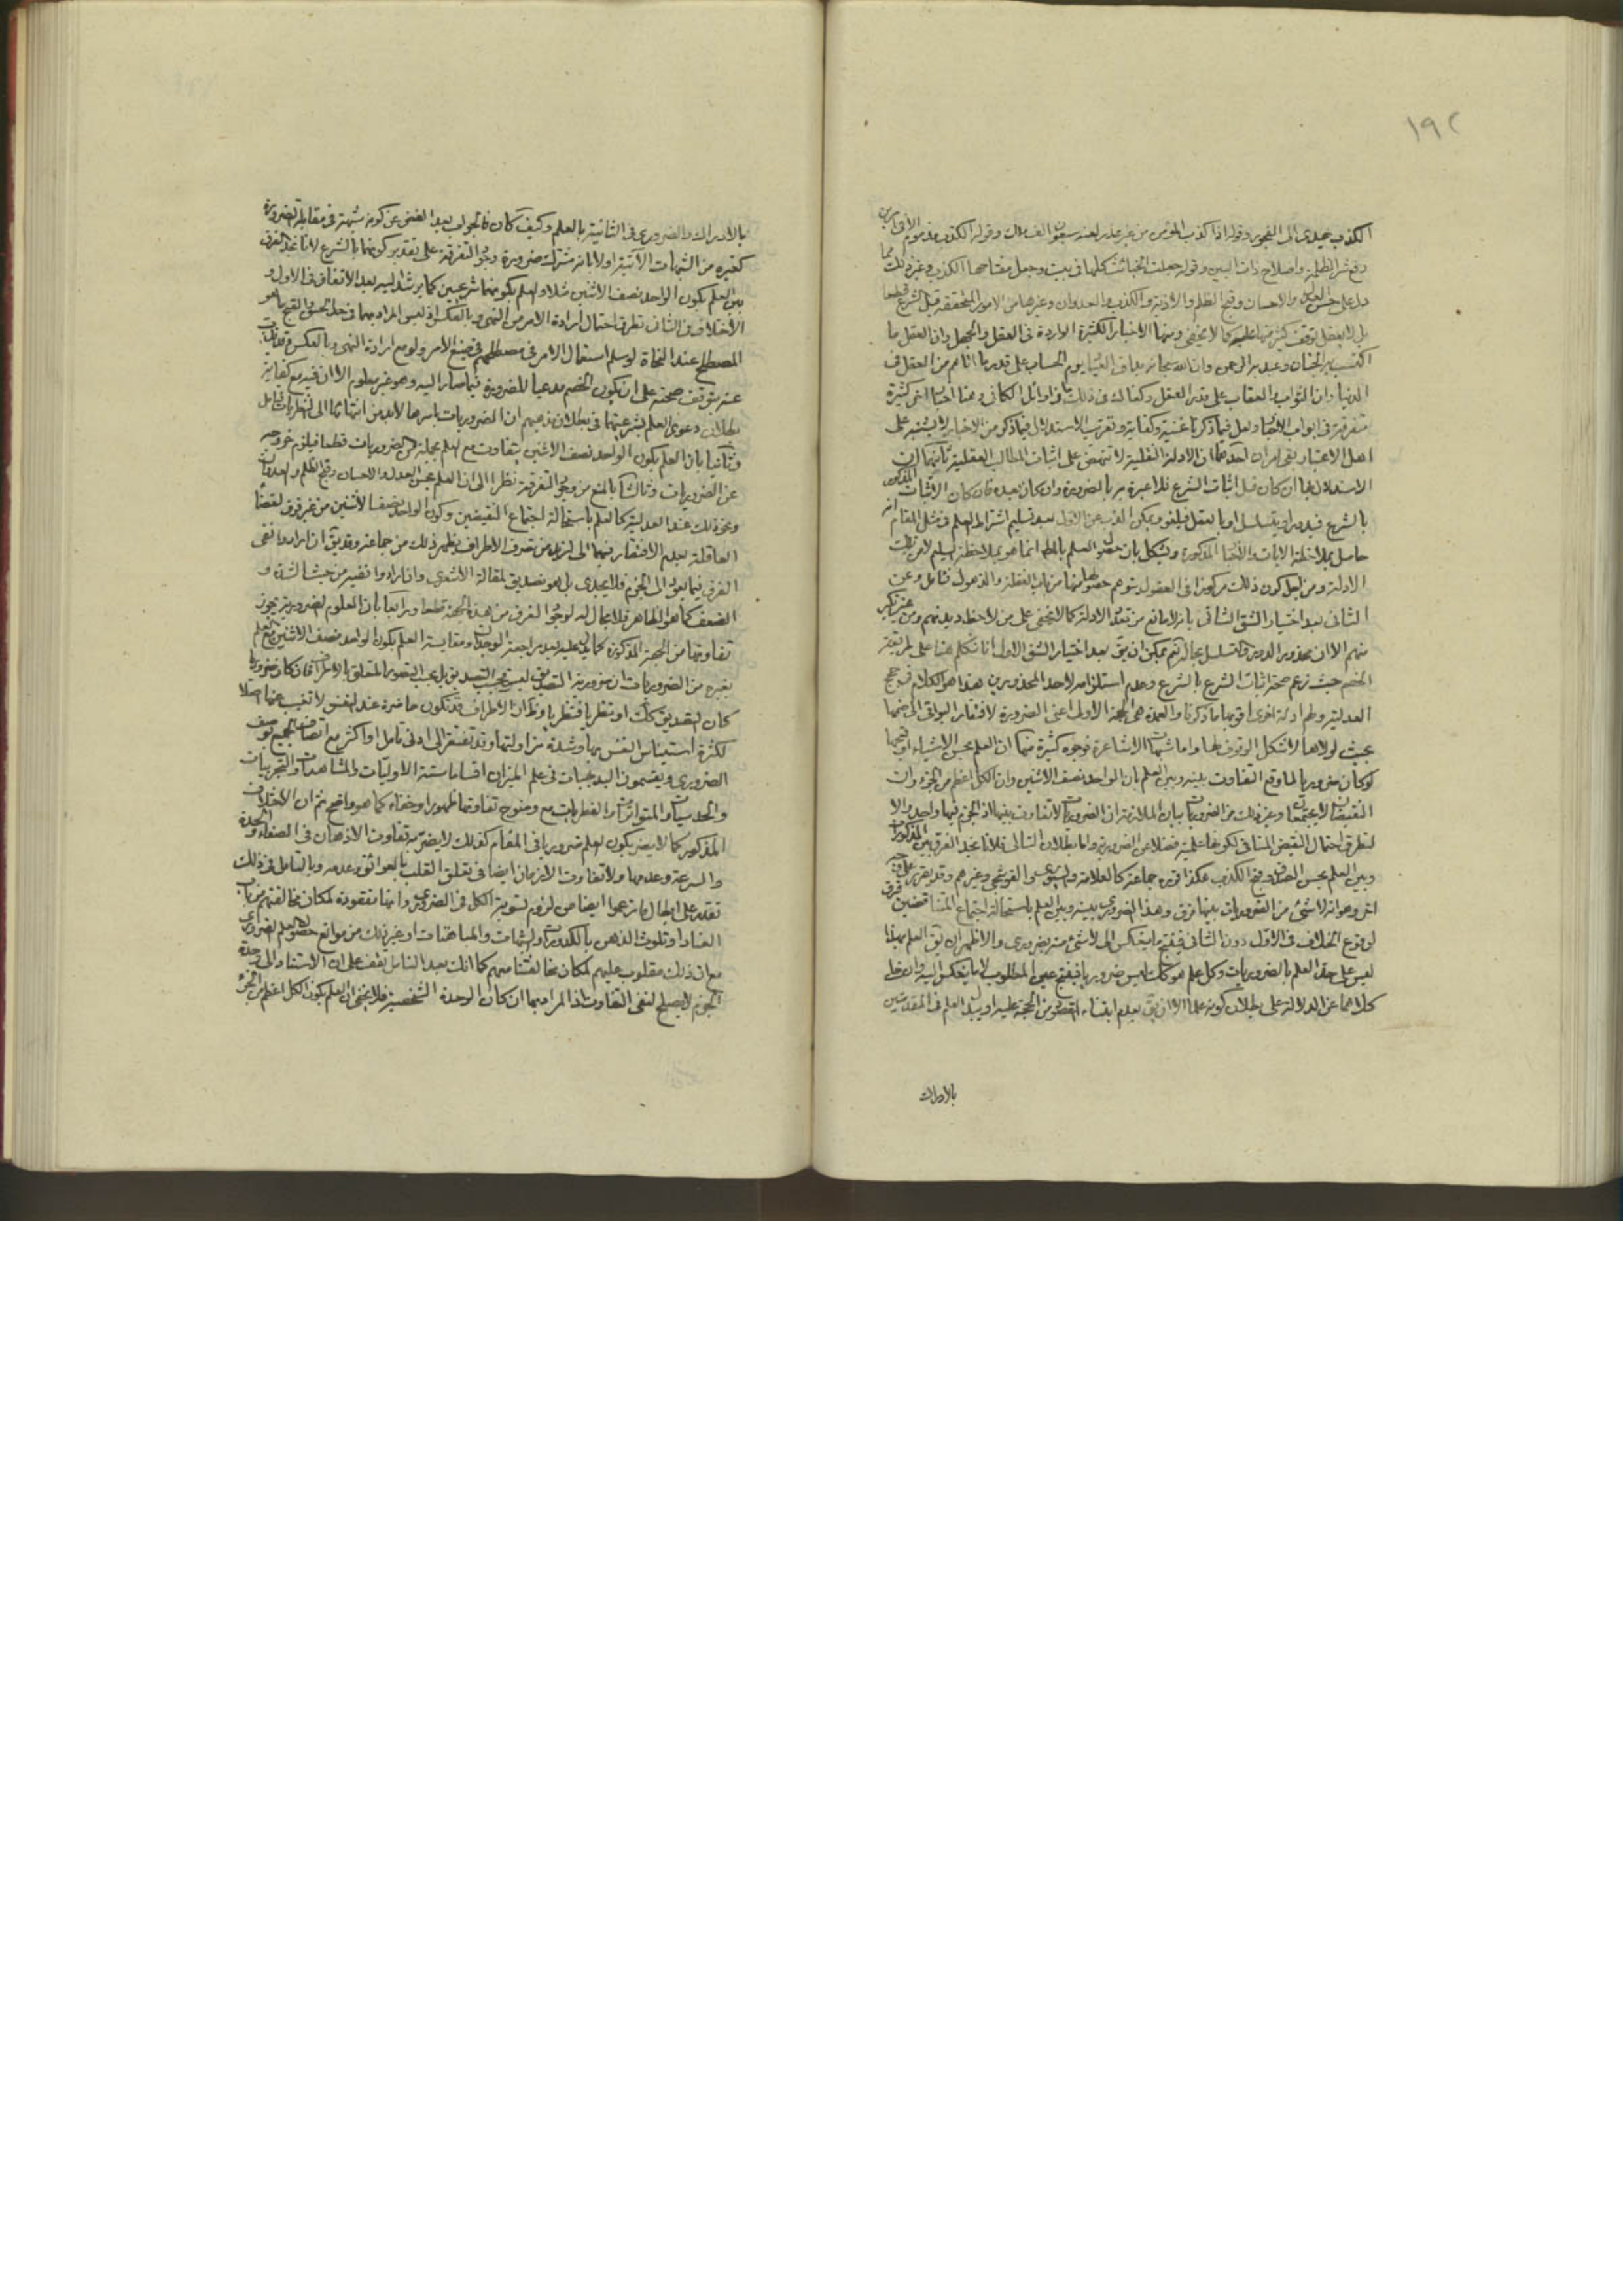 ١٩٢
الكذب يهدى الى الفجور وقوله اذا كذب المؤمن من غير عذر لعنه سبعون الف ملك وقوله الكذب مذموم الا فى امرين
دفع شر الظلمة واصلاح ذات البين وقوله جعلت الخبائث كلها فى بيت وجعل مفتاحها الكذب وغير ذلك مما
دل على حسن العدل والاحسان وقبح الظلم والاذية والكذب والعدوان وغيرها من الامور المتحققة قبل الشرع قطعا
بل لا يعقل توقف كثير منها عليه كما لا يخفى ومنها الاخبار الكثيرة الواردة فى العقل والجهل وان العقل ما
اكتسب به الجنان وعبد به الرحمن وان الله سبحانه يداق العباد يوم الحساب على قدر ما اتاهم من العقل فى
الدنيا وان الثواب والعقاب على قدر العقل وكفاك فى ذلك ما فى اوائل الكافى وهنا اخبار اخر كثيرة
متفرقة فى ابواب الاخبار ولعل فيما ذكرنا غنية وكفاية وتقريب الاستدلال فيما ذكر من الاخبار لا يشتبه على
اهل الاعتبار بقى امران احدهما ان الادلة النقلية لا تنهض على اثبات المطالب العقلية ثانيهما ان
الاستدلال بها ان كان قبل اثبات الشرع فلا عبرة به بالضرورة وان كان بعده فان كان الاثبات المذكور
بالشرع فيدور او يتسلسل او بالعقل فيلغو ويمكن الذب عن الاول بعد تسليم اشتراط العلم فى مثل المقام انه
حاصل بملاحظة الايات والاخبار المذكورة ويشكل بان حصول العلم بالحكم انما هو بملاحظة
الادلة ومن اجل كون ذلك مركوزا فى العقول يتوهم حصوله منها من باب الغفلة والذهول فتامل وعن
الثانى بعد اختيار الشق الثانى بانه لا مانع من تعدد الادلة كما لا يخفى على من لاحظ ديدنهم ومن غير نكير
منهم الا ان محذور الدور والتسلسل بحاله نعم يمكن ان يق بعد اختيار الشق الاول انا نتكلم هنا على طريقة
الخصم حيث زعم صحة اثبات الشرع بالشرع وعدم استلزامه لاحد المحذورين هذا هو الكلام فى حجج
العدلية ولهم ادلة اخرى اقويها ما ذكرنا والعمدة هى الحجة الاولى اعنى الضرورة لافتقار البواقى الى ضمها
بحيث لولاها لاشكل الوقوف لها واما شبهات الاشاعرة فوجوه كثيرة منها ان العلم بحسن الاشياء وقبحها
لو كان ضروريا لما وقع التفاوت بينه وبين العلم بان الواحد نصف الاثنين وان الكل اعظم من الجزء وان
النقيضان لا يجتمعان وغير ذلك من الضروريات بيان الملازمة ان الضروريات لا تفاوت بينها اذ الجزم فيها واحد والا
لتطرق احتمال النقيض المنافى لكونها علمية فضلا عن الضرورية واما بطلان التالى فلانا نجد الفرق بين المذكورات
وبين العلم بحسن الصدق وقبح الكذب هكذا قرره جماعة كالعلامة والسيورى والقوشجى وغيرهم وقد يقرر على وجه
اخر وهو انه لا شئ من الضروريات بينها فرق وهذا الضرورى بينه وبين العلم باستحالة اجتماع المتناقضين فرق
لوقوع الخلاف فى الاول دون الثانى فينتج ما ينعكس الى لا شئ منه بضرورى والاظهر ان يق العلم بهذا
ليس على حد العلم بالضروريات وكل علم هو كذلك ليس ضروريا فينتج عين المطلوب لا ما ينعكس اليه
كلاهما عن الدلالة على بطلان كونه علما الا ان يق بعدم ابتناء المقصود من الحجة عليه او يبدل العلم فى المقدمتين
بالادراك
بالادراك والضرورى فى الثانية بالعلم وكيف كان فالجواب بعد الغض عن كونه شبهة فى مقابلة الضرورة
كغيره من الشبهات الاتية اولا بانه مشترك ضرورة وجود التفرقة على تقدير كونهما بالشرع لانا نجد الفرق
بين العلم بكون الواحد نصف الاثنين مثلا والعلم بكونهما شرعيين كما يرشد اليه بعد الاتفاق فى الاول و
الاختلاف فى الثانى تطرق احتمال ارادة الامر من النهى وبالعكس اذ ليس المراد بهما فى حد الحسن والقبح ما هو
المصطلح عند النحاة لو سلم استعمال الامر فى مصطلحهم فى صيغ الامر ولو مع ارادة النهى وبالعكس
عنه بتوقف صحته على ان يكون الخصم مدعيا للضرورة فيما صار اليه وهو غير معلوم الا ان فيه مع كفاية
بطلان دعوى العلم بشرعيتهما فى بطلان مذهبهم ان الضروريات باسرها لا بد من انتهائها الى النظريات فتامل
وثانيا بان العلم بكون الواحد نصف الاثنين يتفاوت مع العلم بجملة من الضروريات قطعا فيلزم خروجه
عن الضروريات وثالثا بالمنع من وجود التفرقة نظرا الى ان العلم بحسن العدل والاحسان وقبح الظلم والعدوان
ونحو ذلك عند العدلية كالعلم باستحالة اجتماع النقيضين وكون الواحد نصف الاثنين من غير فرق لقضاء
العاقلة بعدم الافتقار فيهما الى ازيد من تصور الاطراف يظهر ذلك من جماعة وقد يق ان ارادوا نفى
الفرق فيما يعود الى الجزم فلا يجدى بل هو تصديق لمقالة الاشعرى وان ارادوا نفيه من حيث الشدة و
الضعف كما هو الظاهر فلا مجال له لوجود الفرق من هذه الجهة قطعا ورابعا بان العلوم الضرورية يجوز
تفاوتها من الجهة المذكورة كما يدل عليه بعد مراجعة الوجدان ومقايسة العلم بكون الواحد نصف الاثنين مع العلم
بغيره من الضروريات ان ضرورية التصديق ليست بحسب التصديق بل بحسب التصور المتعلق بالاطراف فان كان ضروريا
كان التصديق كك او نظريا فنظريا وتلك الاطراف قد تكون حاضرة عند النفس لا تغيب عنها اصلا
لكثرة استيناس النفس بها وشدة مزاولتها وقد تفتقر الى ادنى تامل او اكثر مع اتصاف الجميع بوصف
الضرورى ويقسمون البديهيات فى علم الميزان اقساما ستة الاوليات والمشاهدات والتجربيات
والحدسيات والمتواترات والفطريات مع وضوح تفاوتها ظهورا وخفاء كما هو واضح ثم ان الاختلاف
المذكور كما لا يضر بكون العلم ضروريا فى المقام كذلك لا يضر به تفاوت الاذهان فى الصفاء والحدة
والسرعة وعدمها ولا تفاوت الازمان ايضا فى تعلق القلب بالعوائق وعدمه وبالتامل فى ذلك
تقتدر على ابطال ما زعموا ايضا من لزوم تسوية الكل فى الضرورى وانها مفقودة لمكان مخالفتهم من باب
العناد او تلوث الذهن بالكدورات والشبهات والمناقضات او غير ذلك من موانع حصول العلم الضرورى
مع ان ذلك مقلوب عليهم لمكان مخالفتنا معهم كما انك بعد التامل تقف على ان الاستناد الى وحدة
الجزم لا يصلح لنفى التفاوت اذ المراد بها ان كان الوحدة الشخصية فلا يخفى ان العلم بكون الكل اعظم من الجزء